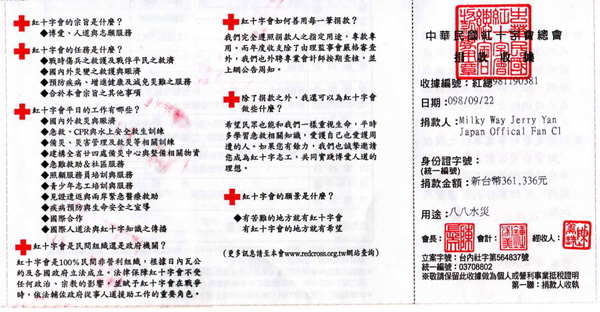 紅十字會的宗旨是什麼？
◆博愛、人道與志願服務
紅十字會的任務是什麼？
◆戰時傷兵之救護及戰俘平民之救濟
◆國內外災變之救護與賑濟
◆預防疾病、增進健康及減免災難之服務
◆合於本會宗旨之其他事項
紅十字會平日的工作有哪些？
◆國內外救災與賑濟
◆急救、CPR與水上安全救生訓練
◆備災、災害管理及救災等相關訓練
◆建構全省廿四處備災中心與整備相關物資
◆急難救助與社區服務
◆照顧服務員培訓與服務
◆青少年志工培訓與服務
◆見證遣返與兩岸緊急醫療救助
◆疾病預防與生命安全之宣導
◆國際合作
◆國際人道法與紅十字知識之傳播
紅十字會是民間組織還是政府機關？
紅十字會是100%民間非營利組織，根據日內瓦公
約及各國政府立法成立。法律保障紅十字會不受
任何政治、宗教的影響，並賦予紅十字會在戰爭
時，依法輔佐政府從事人道援助工作的重要角色。
紅十字會如何善用每一筆捐款？
我們完全遵照捐款人之指定用途，專款專
用。而年度收支除了由理監事會嚴格審查
外，我們也外聘專業會計師按期查核，並
上網公告周知。
除了捐款之外，我還可以為紅十字會
做些什麼？
希望民眾也能和我們一樣重視生命，平時
多學習急救相關知識，愛護自己也愛護周
遭的人。如果您有餘力，我們也誠摯邀請
您成為紅十字志工，共同實踐博愛人道的
理想。
紅十字會的願景是什麼？
◆有苦難的地方就有紅十字會
有紅十字會的地方就有希望
(更多訊息請至本會www.redcross.org.tw網站查詢)
中華民國紅十字會總會
捐款收據
收據編號：紅總981190381
日期：098/09/22
捐款人：Milky Way Jerry Yan
Japan Offical Fan Cl
身份證字號：
(統一編號)
捐款金額：新台幣361,336元
用途：八八水災
會長： 會計： 經收人：
立案字號：台內社字第564837號
統一編號：03708802
※敬請保留此收據做為個人或營利事業抵稅證明
第一聯：捐款人收執